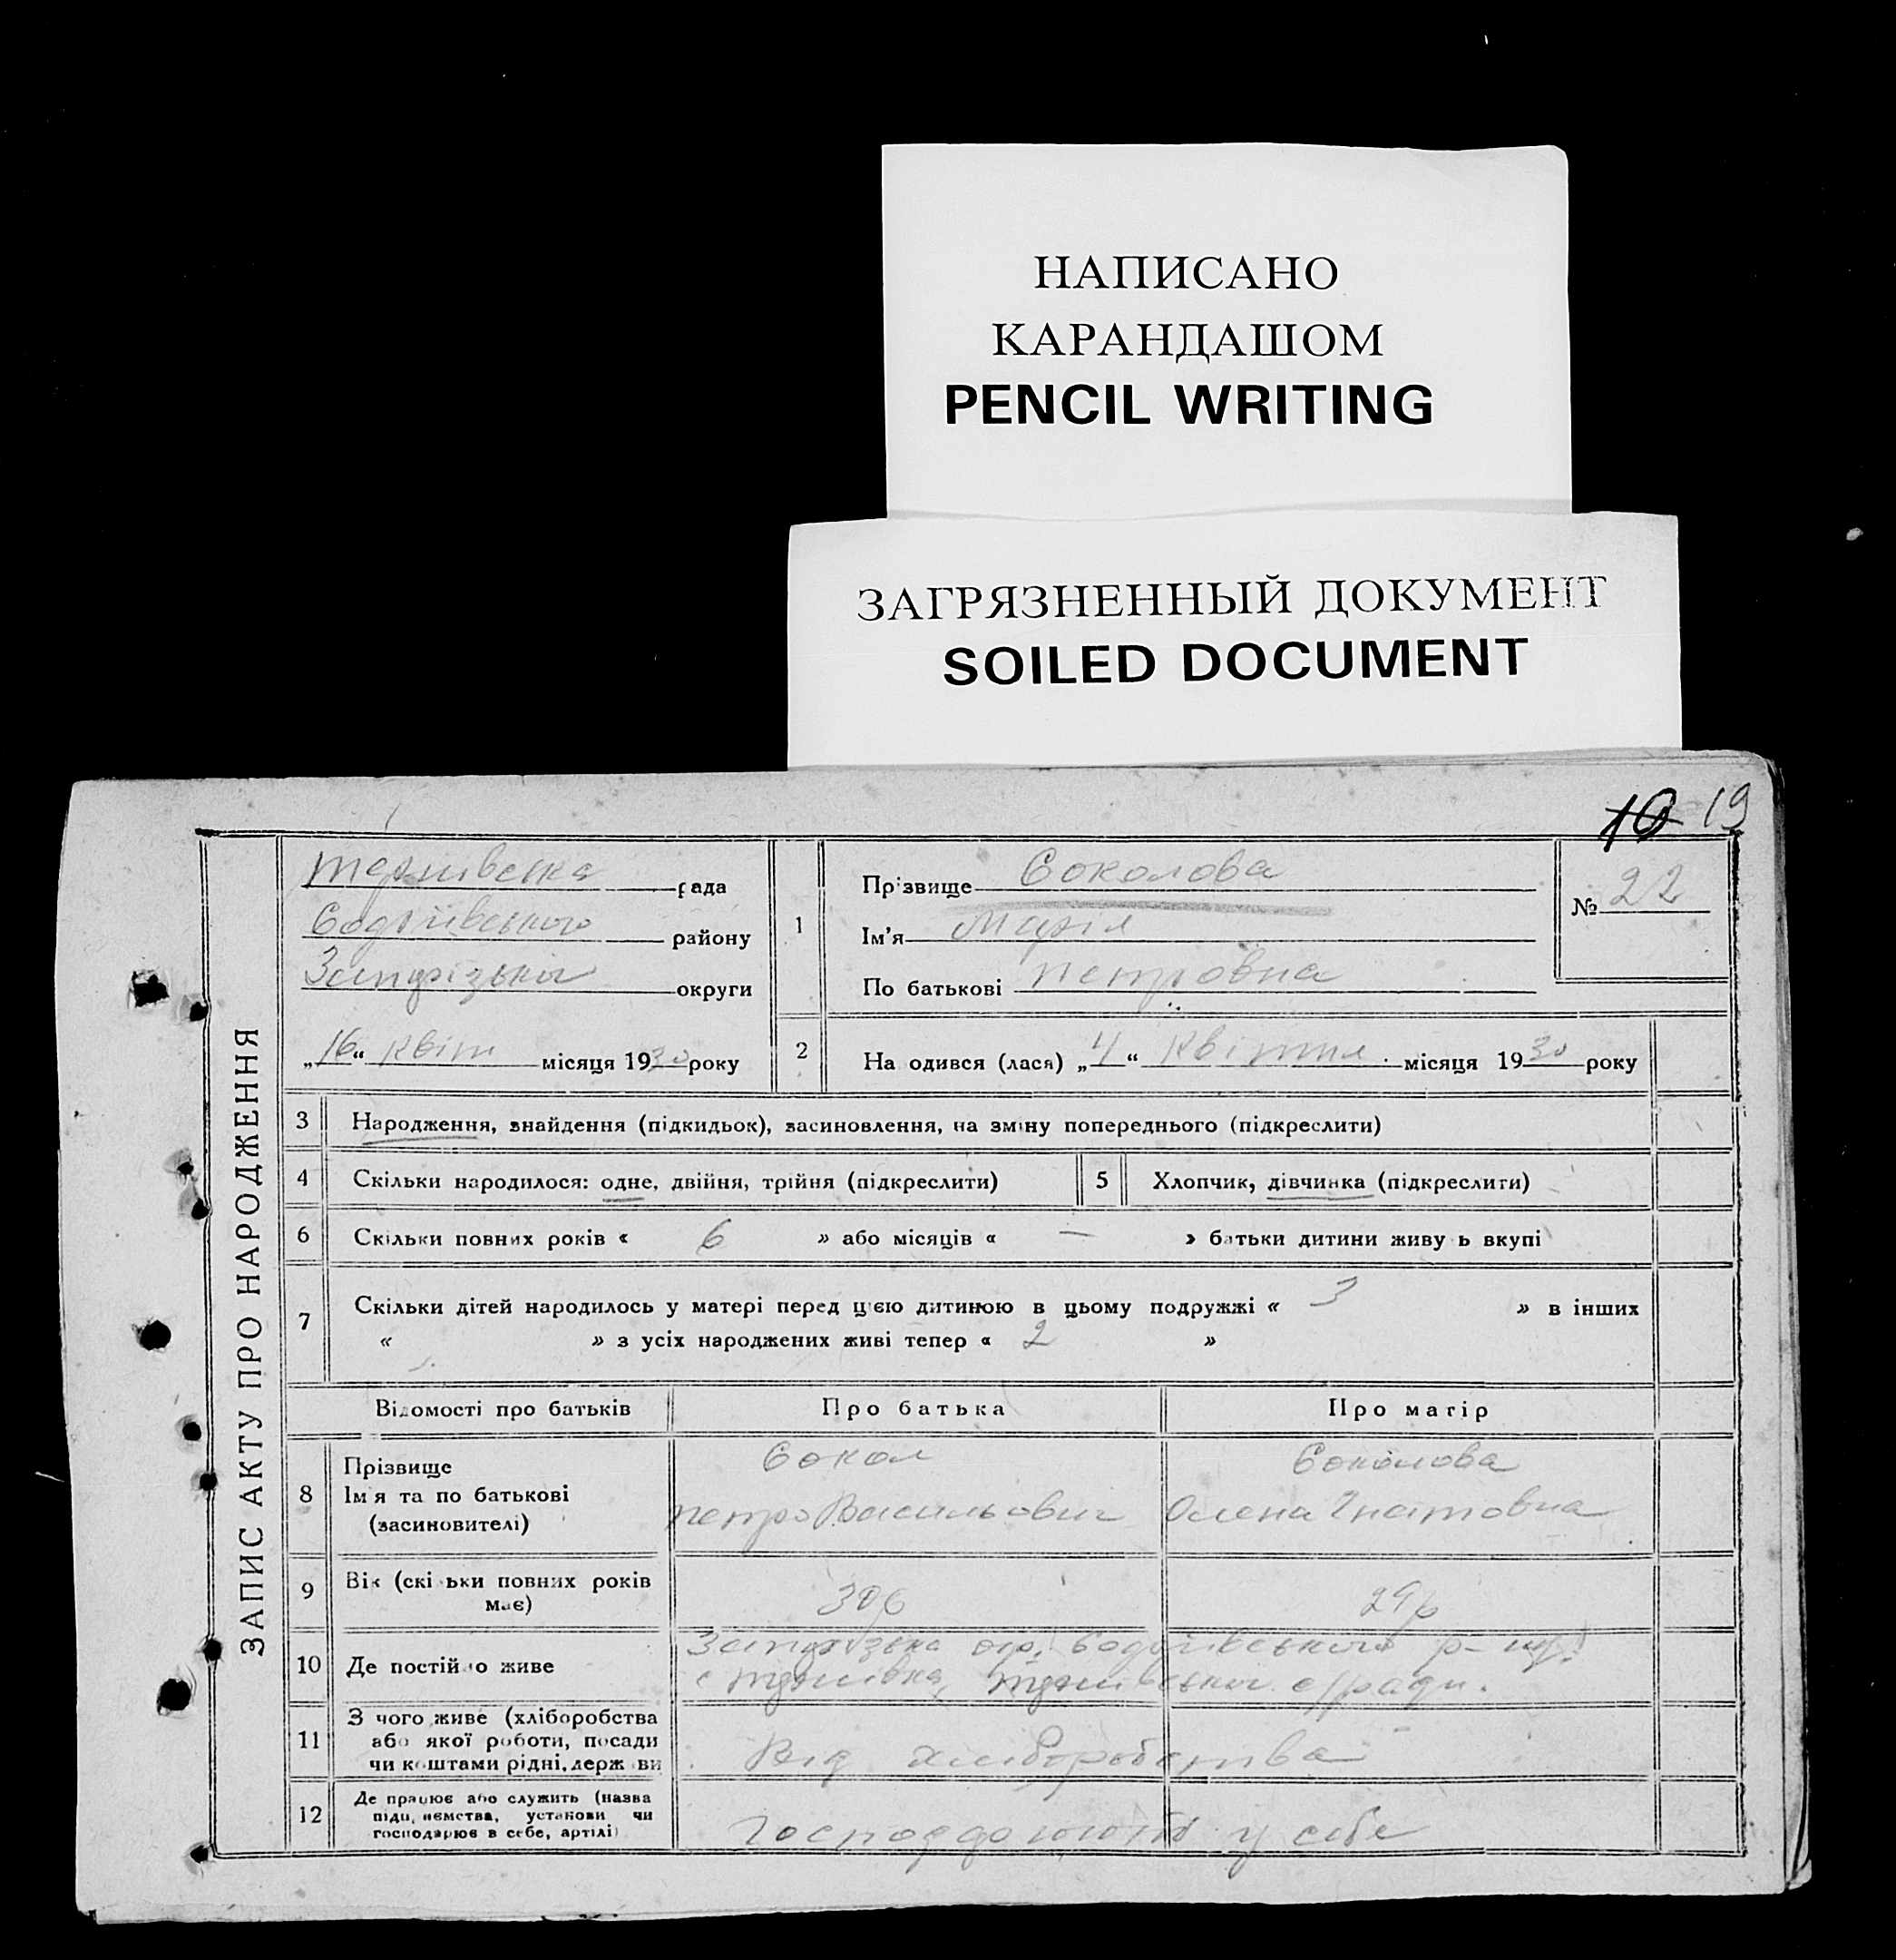 НАПИСАНО
КАРАНДАШОМ
PENCIL WRITING
ЗАГРЯЗНЕННЫЙ ДОКУМЕНТ
SOILED DOCUMENT
10 19
ЗАПИС АКТУ ПРО НАРОДЖЕННЯ
рада
району
Запорізької округи
„16“ квітн місяця 1930 року
1 Прізвище Соколова
Ім'я Марія
По батькові Петровна
№ 22
2 На одився (лася) „4“ Квітня місяця 1930 року
3 Народження, знайдення (підкидьок), засиновлення, на зміну попереднього (підкреслити)
4 Скільки народилося: одне, двійня, трійня (підкреслити) 5 Хлопчик, дівчинка (підкреслити)
6 Скільки повних років « 6 » або місяців « — » батьки дитини живу ь вкупі
7 Скільки дітей народилось у матері перед цією дитиною в цьому подружжі « 3 » в інших
« » з усіх народжених живі тепер « 2 »
Відомості про батьків Про батька Про матір
8 Прізвище Сокол Соколова
Ім'я та по батькові Петро Васильович Олена Гнатовна
(засновителі)
9 Вік (скільки повних років має) 30 р 29 р
10 Де постійно живе Запорізька окр. р-ну
с/ради.
11 З чого живе (хліборобства
або якої роботи, посади
чи коштами рідні, держави Від хліборобства
12 Де працює або служить (назва
підприємства, установи чи
господарює в себе, артілі) у себе